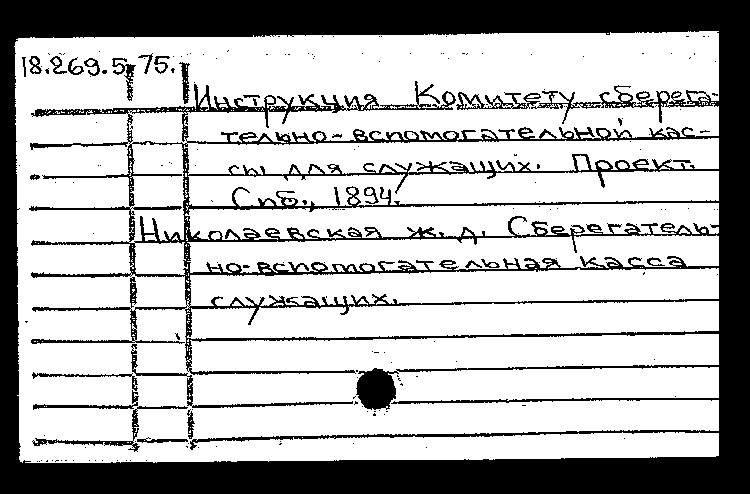 18.269.5.75.
Инструкция Комитету сберега-
тельно-вспомогательной кас-
сы для служащих. Проект.
Спб., 1894.
Николаевская ж. д. Сберегатель-
но-вспомогательная касса
служащих.